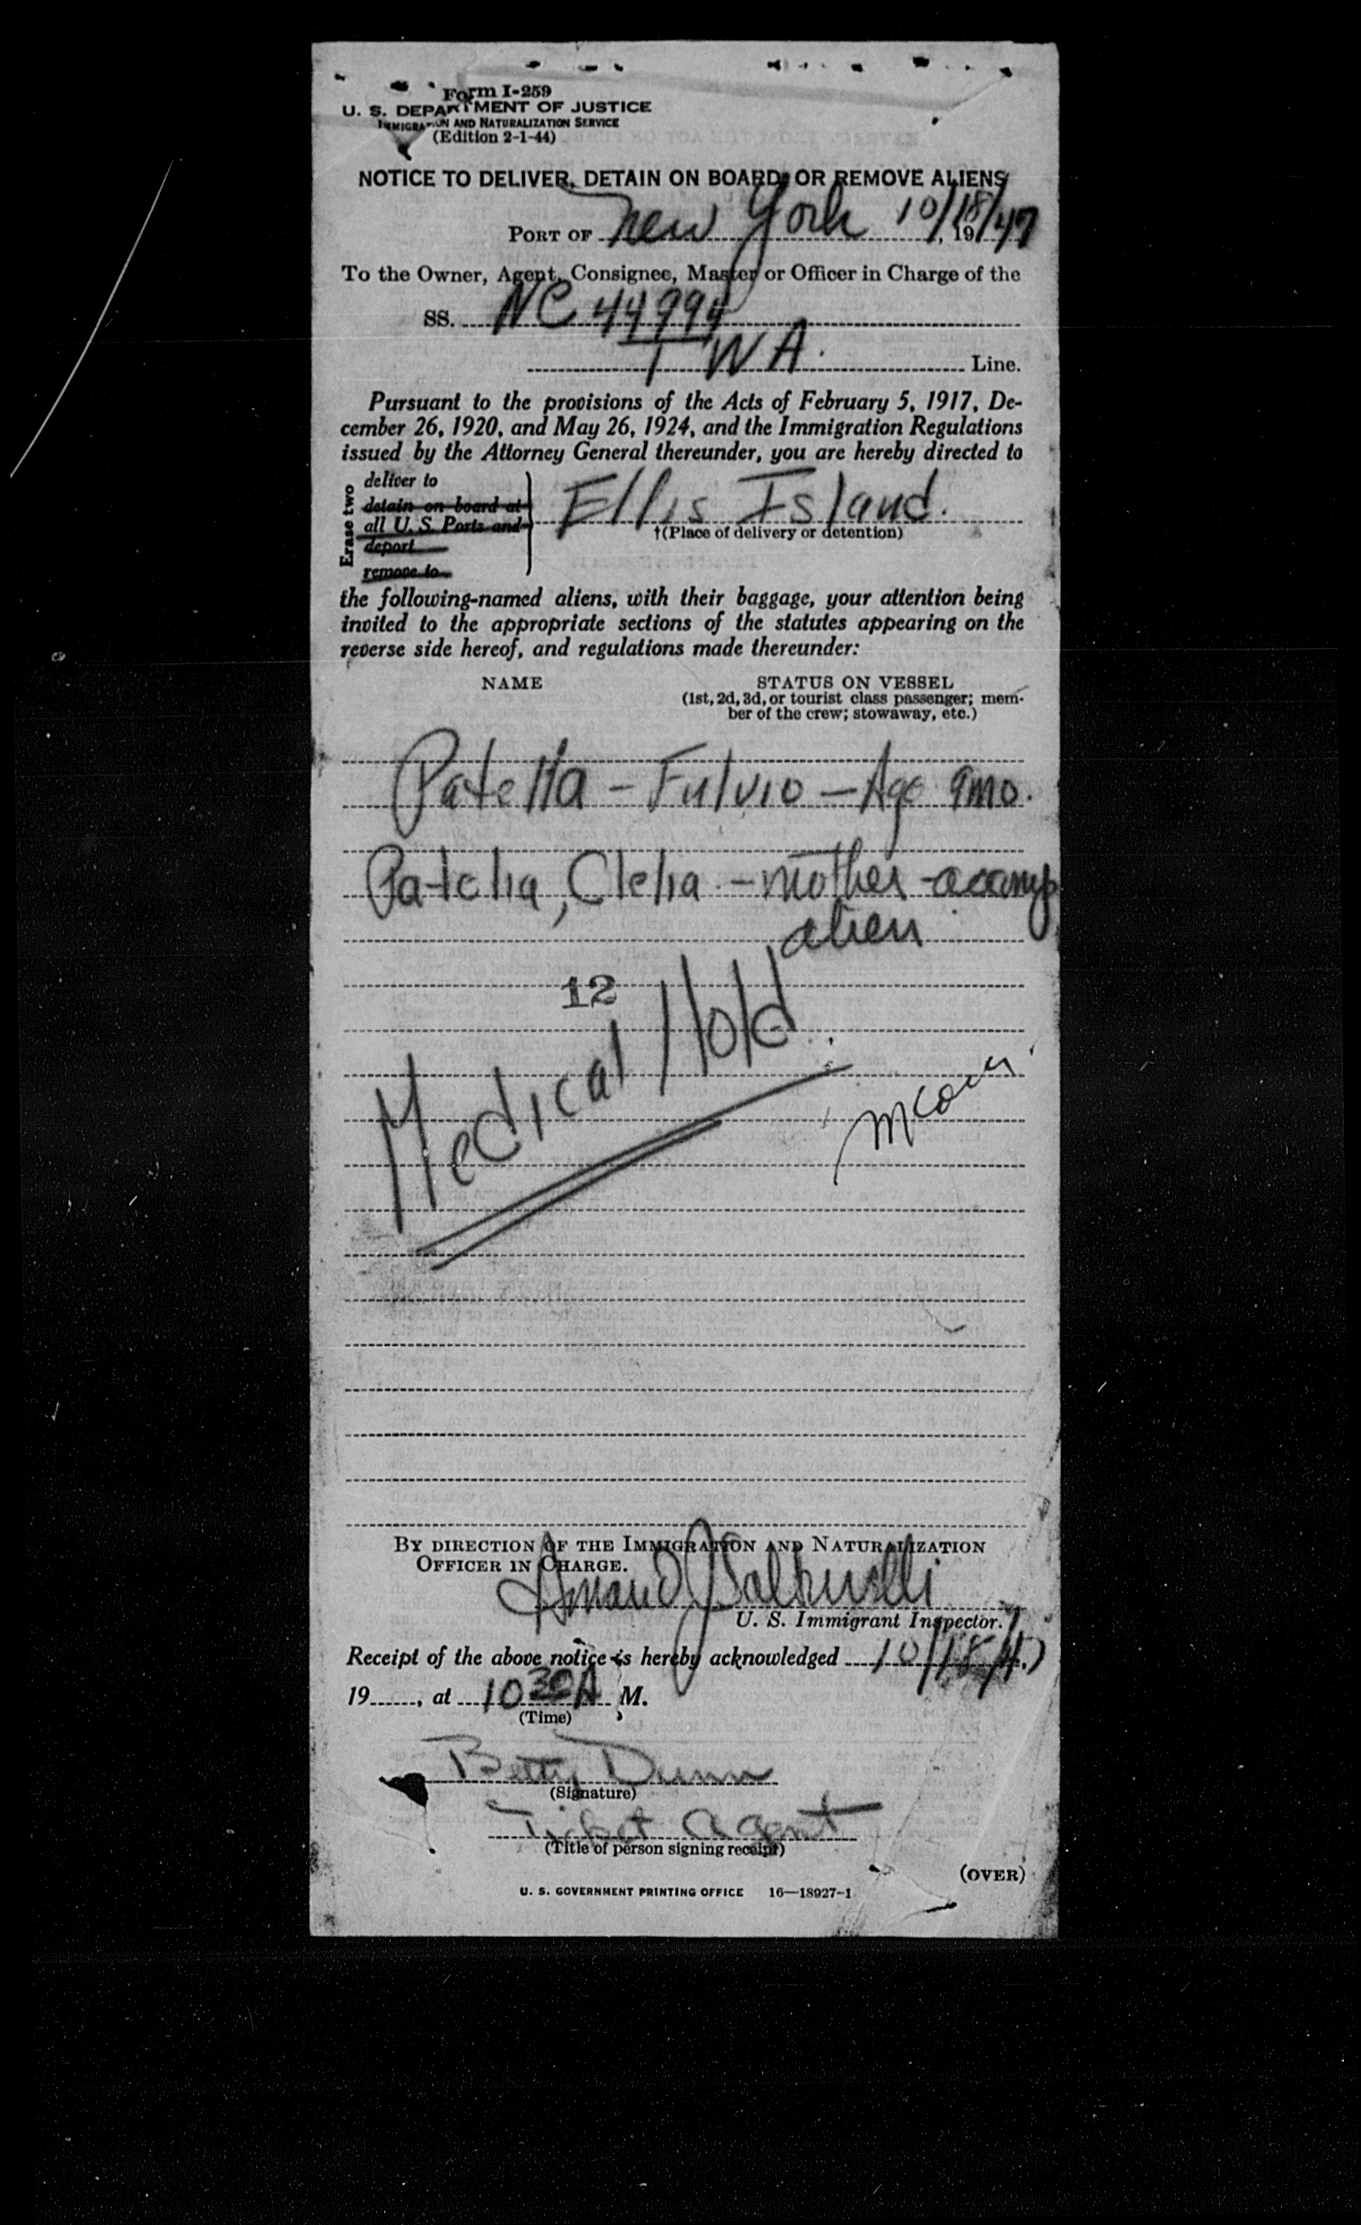 Form I-259
U. S. DEPARTMENT OF JUSTICE
IMMIGRATION AND NATURALIZATION SERVICE
(Edition 2-1-44)
NOTICE TO DELIVER, DETAIN ON BOARD, OR REMOVE ALIENS
PORT OF New York 10/18/47, 19
To the Owner, Agent, Consignee, Master or Officer in Charge of the
SS. NC 44994
TWA. Line.
Pursuant to the provisions of the Acts of February 5, 1917, De-
cember 26, 1920, and May 26, 1924, and the Immigration Regulations
issued by the Attorney General thereunder, you are hereby directed to
Erase two
deliver to
detain on board at
all U. S. Ports and
deport
remove to
Ellis Island.
†(Place of delivery or detention)
the following-named aliens, with their baggage, your attention being
invited to the appropriate sections of the statutes appearing on the
reverse side hereof, and regulations made thereunder:
NAME STATUS ON VESSEL
(1st, 2d, 3d, or tourist class passenger; mem-
ber of the crew; stowaway, etc.)
Patella - Fulvio - Age 9mo.
Patella, Clelia - mother - accomp
alien
12
Medical Hold
BY DIRECTION OF THE IMMIGRATION AND NATURALIZATION
OFFICER IN CHARGE.
U. S. Immigrant Inspector.
Receipt of the above notice is hereby acknowledged 10/18/47
19......, at 10 30 A M.
(Time)
Betty Dunn
(Signature)
Ticket Agent
(Title of person signing receipt)
(OVER)
U. S. GOVERNMENT PRINTING OFFICE 16—18927-1